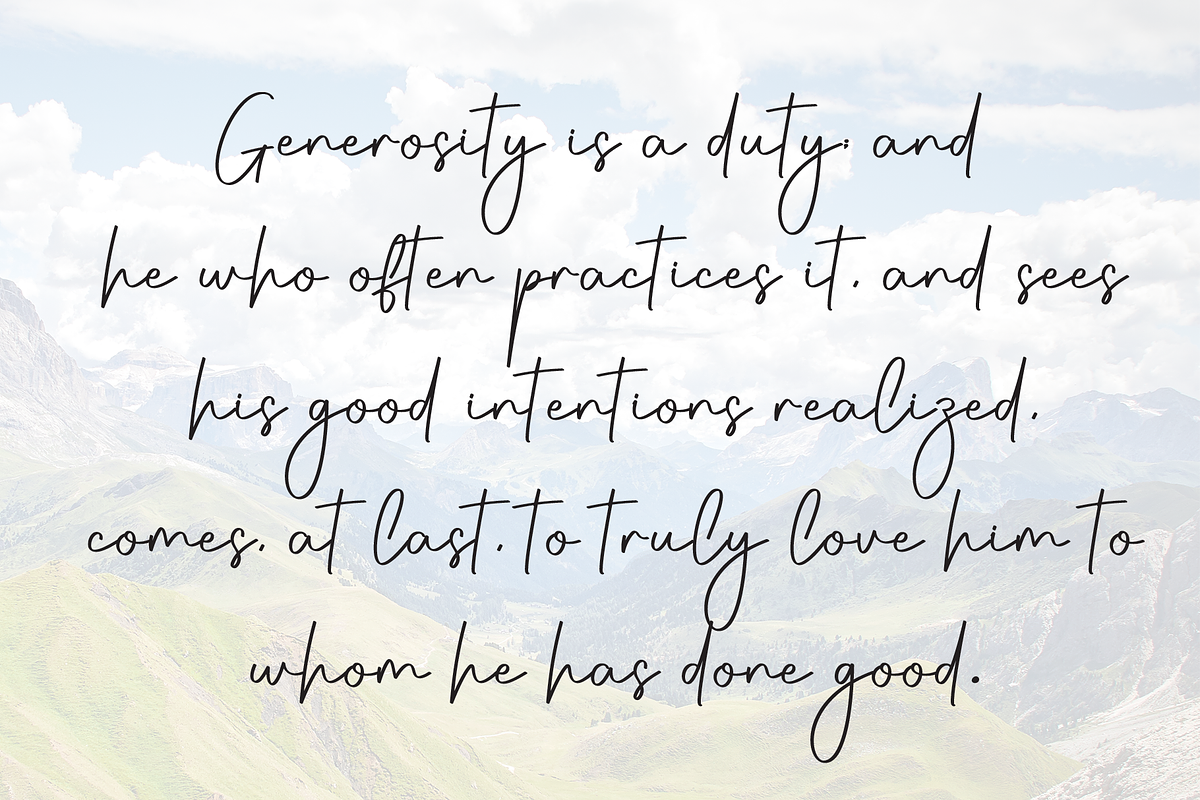 Generosity is a duty; and
he who often practices it, and sees
his good intentions realized,
comes, at last, to truly love him to
whom he has done good.